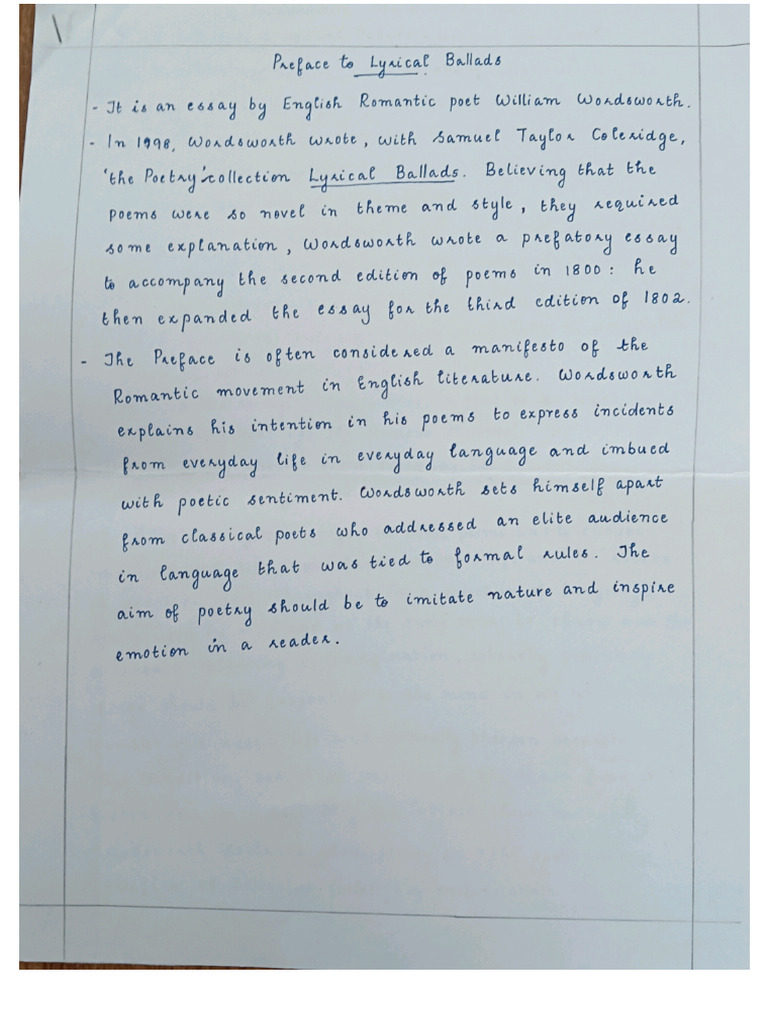 1
Preface to Lyrical Ballads
- It is an essay by English Romantic poet William Wordsworth.
- In 1998, Wordsworth wrote, with Samuel Taylor Coleridge,
'the Poetry' collection Lyrical Ballads. Believing that the
poems were so novel in theme and style, they required
some explanation, Wordsworth wrote a prefatory essay
to accompany the second edition of poems in 1800: he
then expanded the essay for the third edition of 1802.
- The Preface is often considered a manifesto of the
Romantic movement in English literature. Wordsworth
explains his intention in his poems to express incidents
from everyday life in everyday language and imbued
with poetic sentiment. Wordsworth sets himself apart
from classical poets who addressed an elite audience
in language that was tied to formal rules. The
aim of poetry should be to imitate nature and inspire
emotion in a reader.